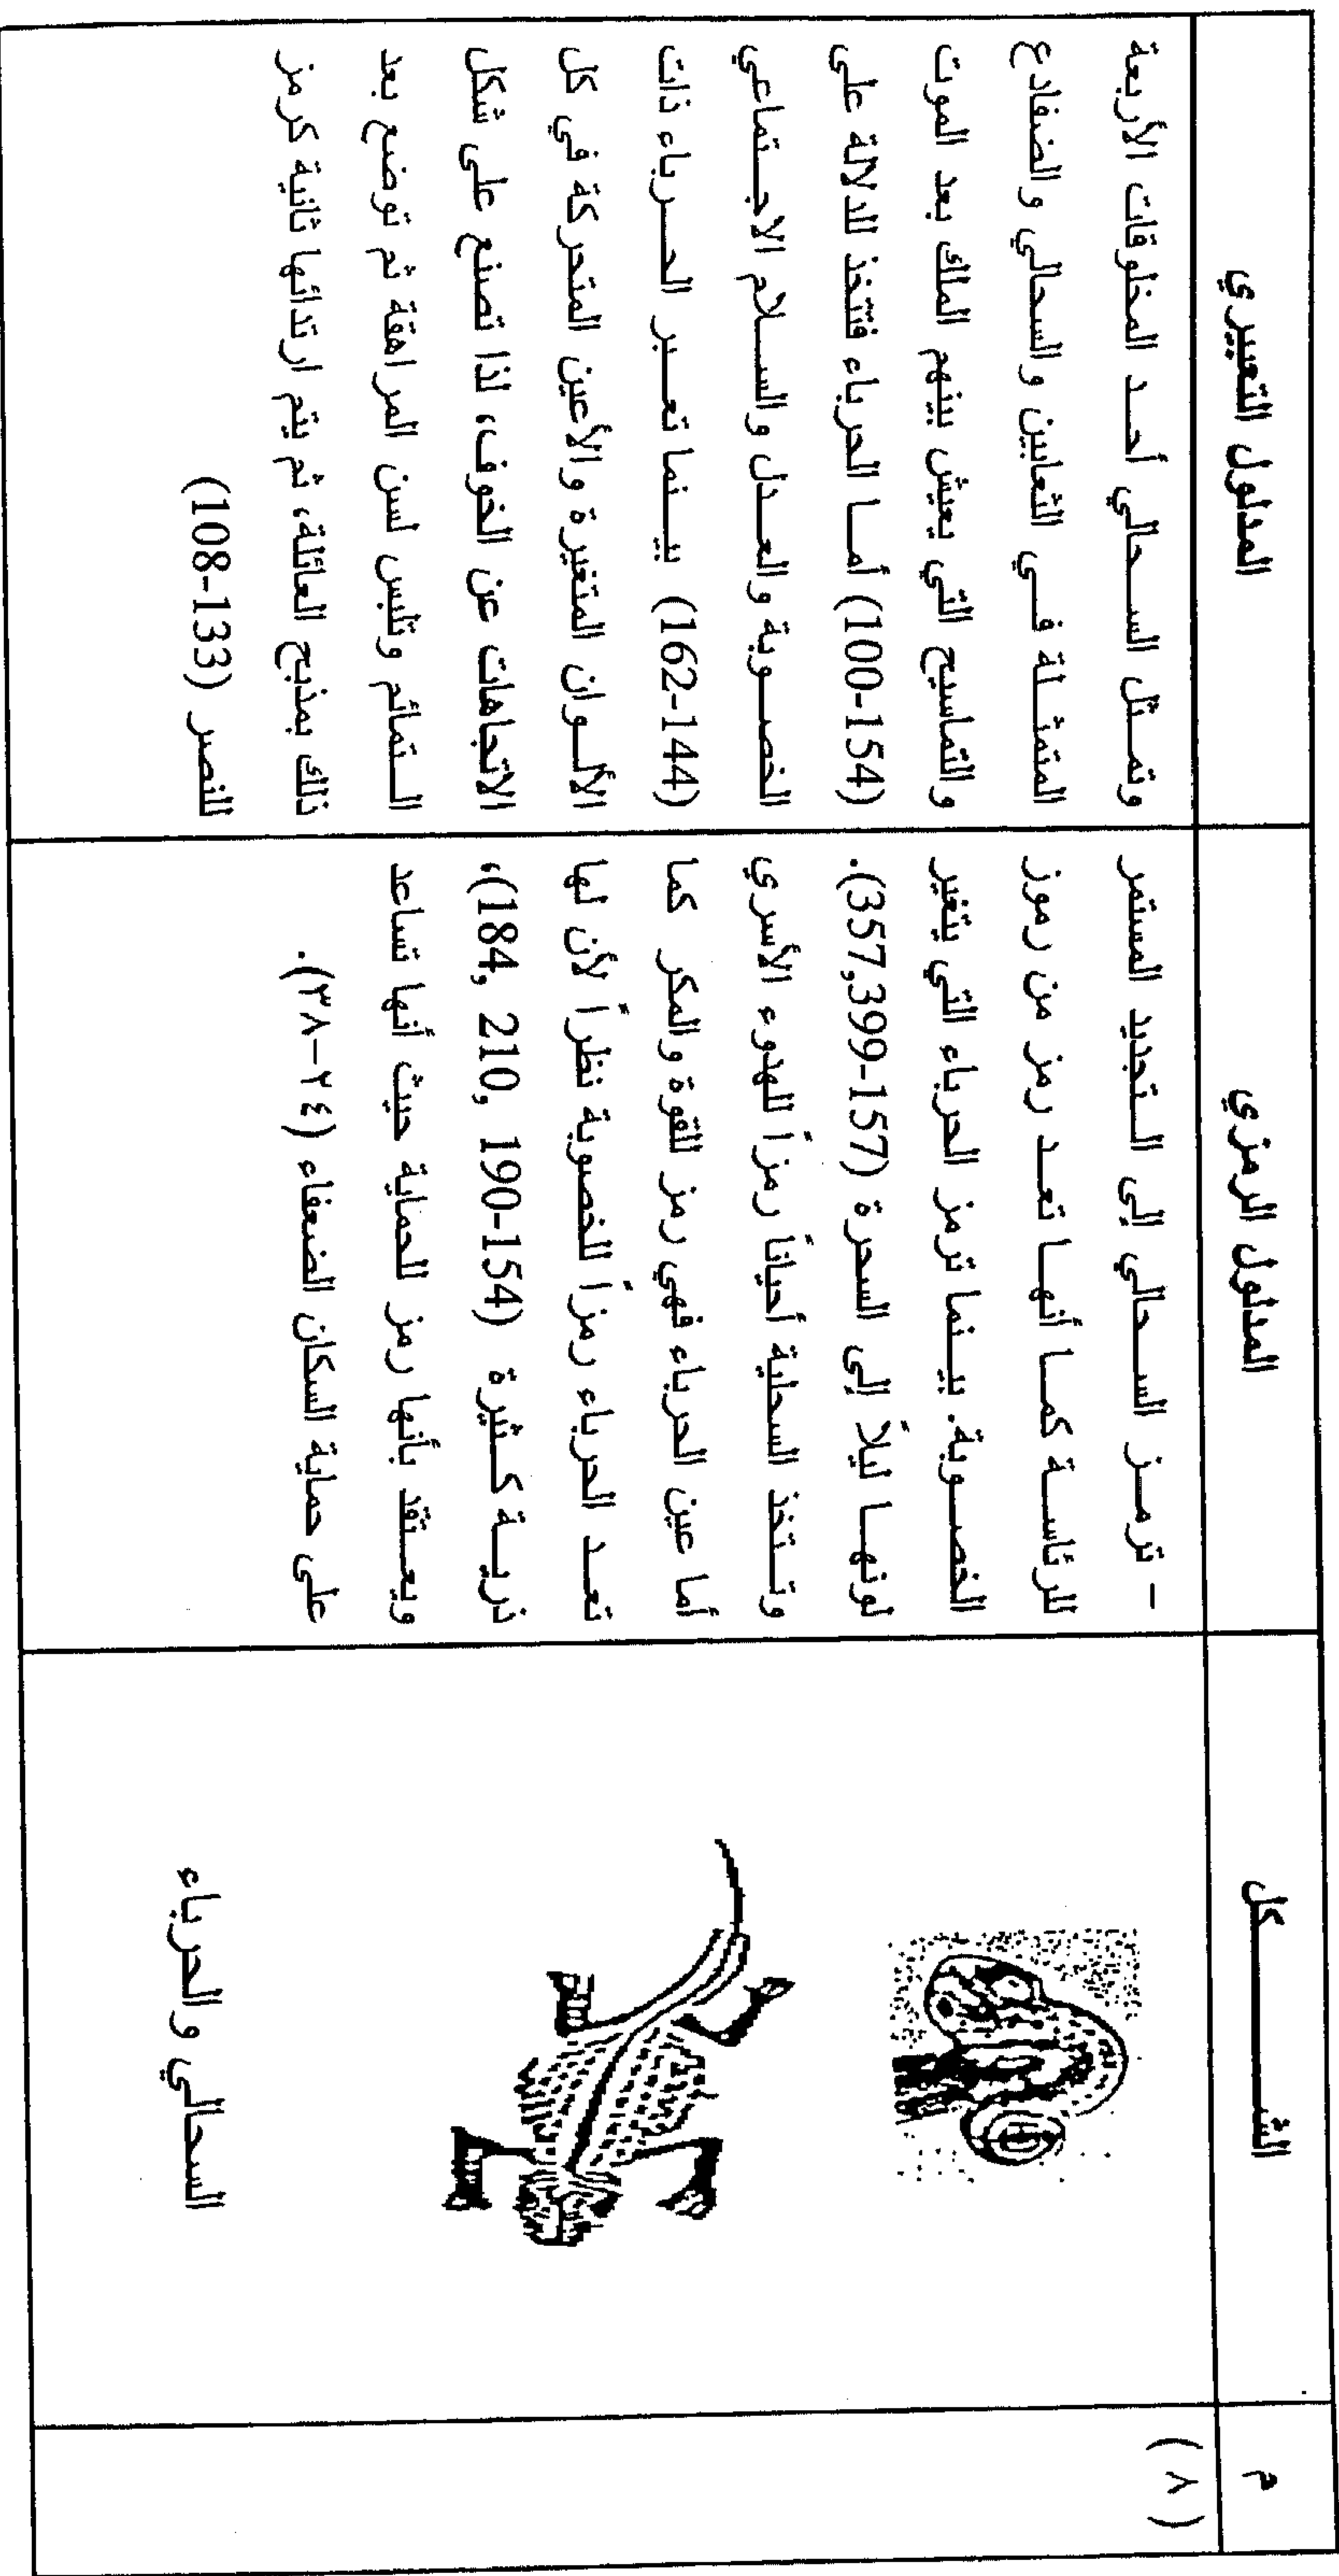 م
الشـــــكل
المدلول الرمزي
المدلول التعبيري
(٨)
السحالي والحرباء
- ترمـز السـحالي إلى الـتجديد المستمر
للرئاسـة كمـا أنهـا تعـد رمز من رموز
الخصـوبة. بيـنما ترمز الحرباء التي يتغير
لونهـا ليلاً إلى السحرة (157-357,399).
وتـتخذ السحلية أحياناً رمزاً للهدوء الأسري
أما عين الحرباء فهي رمز للقوة والمكر كما
تعـد الحرباء رمزاً للخصوبة نظراً لأن لها
ذريـة كـثيرة (154-190 ,210 ,184)،
ويعـتقد بأنها رمز للحماية حيث أنها تساعد
على حماية السكان الضعفاء (٢٤-٣٨).
وتمـثل السـحالي أحـد المخلوقات الأربعة
المتمثـلة فـي الثعابين والسحالي والضفادع
والتماسيح التي يعيش بينهم الملك بعد الموت
(154-100) أمـا الحرباء فتتخذ للدلالة على
الخصـوبة والعـدل والسـلام الاجـتماعي
(144-162) بيـنما تعـبر الحـرباء ذات
الألـوان المتغيرة والأعين المتحركة في كل
الاتجاهات عن الخوف، لذا تصنع على شكل
الـتمائم وتلبس لسن المراهقة ثم توضع بعد
ذلك بمذبح العائلة، ثم يتم ارتدائها ثانية كرمز
للنصر (133-108)